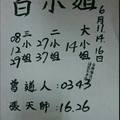 白小姐
6月11.14.16日
大小姐 14
二小姐 27 37
三小姐 08 12 29
曾道人：0343
張天師：16.26